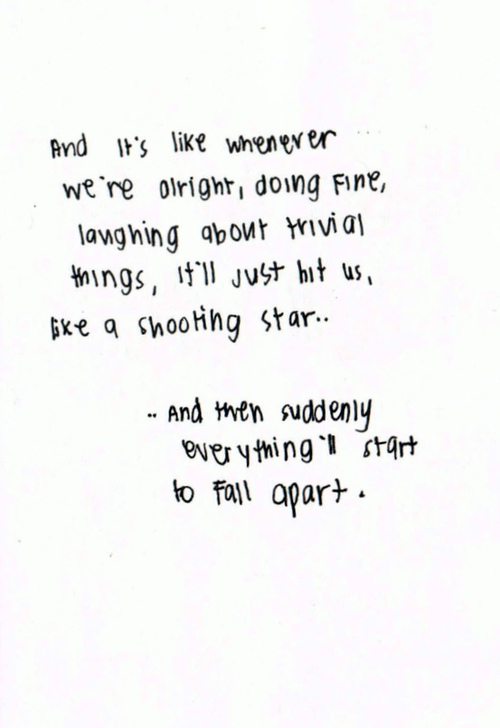 And It's like whenever
we're alright, doing Fine,
laughing about trivial
things, It'll just hit us,
like a shooting star..
.. And then suddenly
everything'll start
to Fall apart.